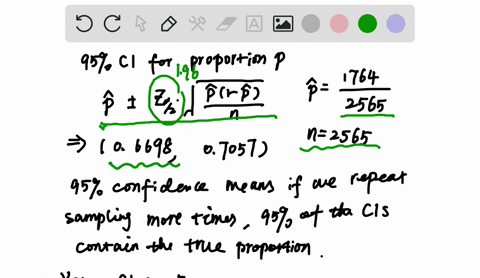 95% CI for proportion P
1.96
p̂ ± Z_α/2 · √(p̂(1-p̂)/n)
p̂ = 1764/2565
⇒ (0.6698, 0.7057)
n=2565
95% confidence means if we repeat
sampling more times, 95% of the CIs
contain the true proportion.